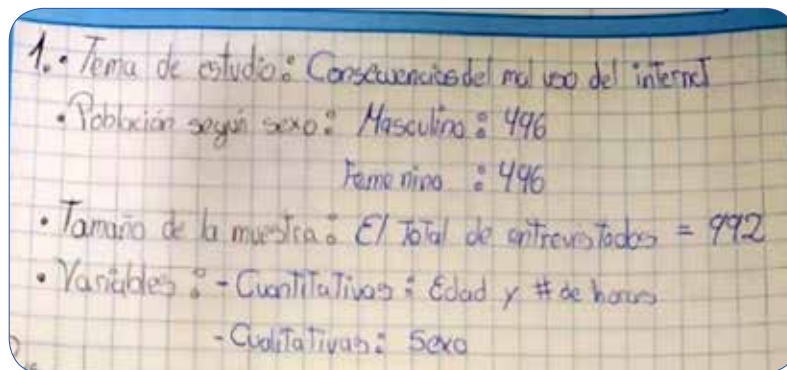 1. • Tema de estudio: Consecuencias del mal uso del internet
• Población según sexo: Masculino: 496
Femenino: 496
• Tamaño de la muestra: El Total de entrevistados = 992
• Variables: - Cuantitativas: Edad y # de horas
- Cualitativas: Sexo